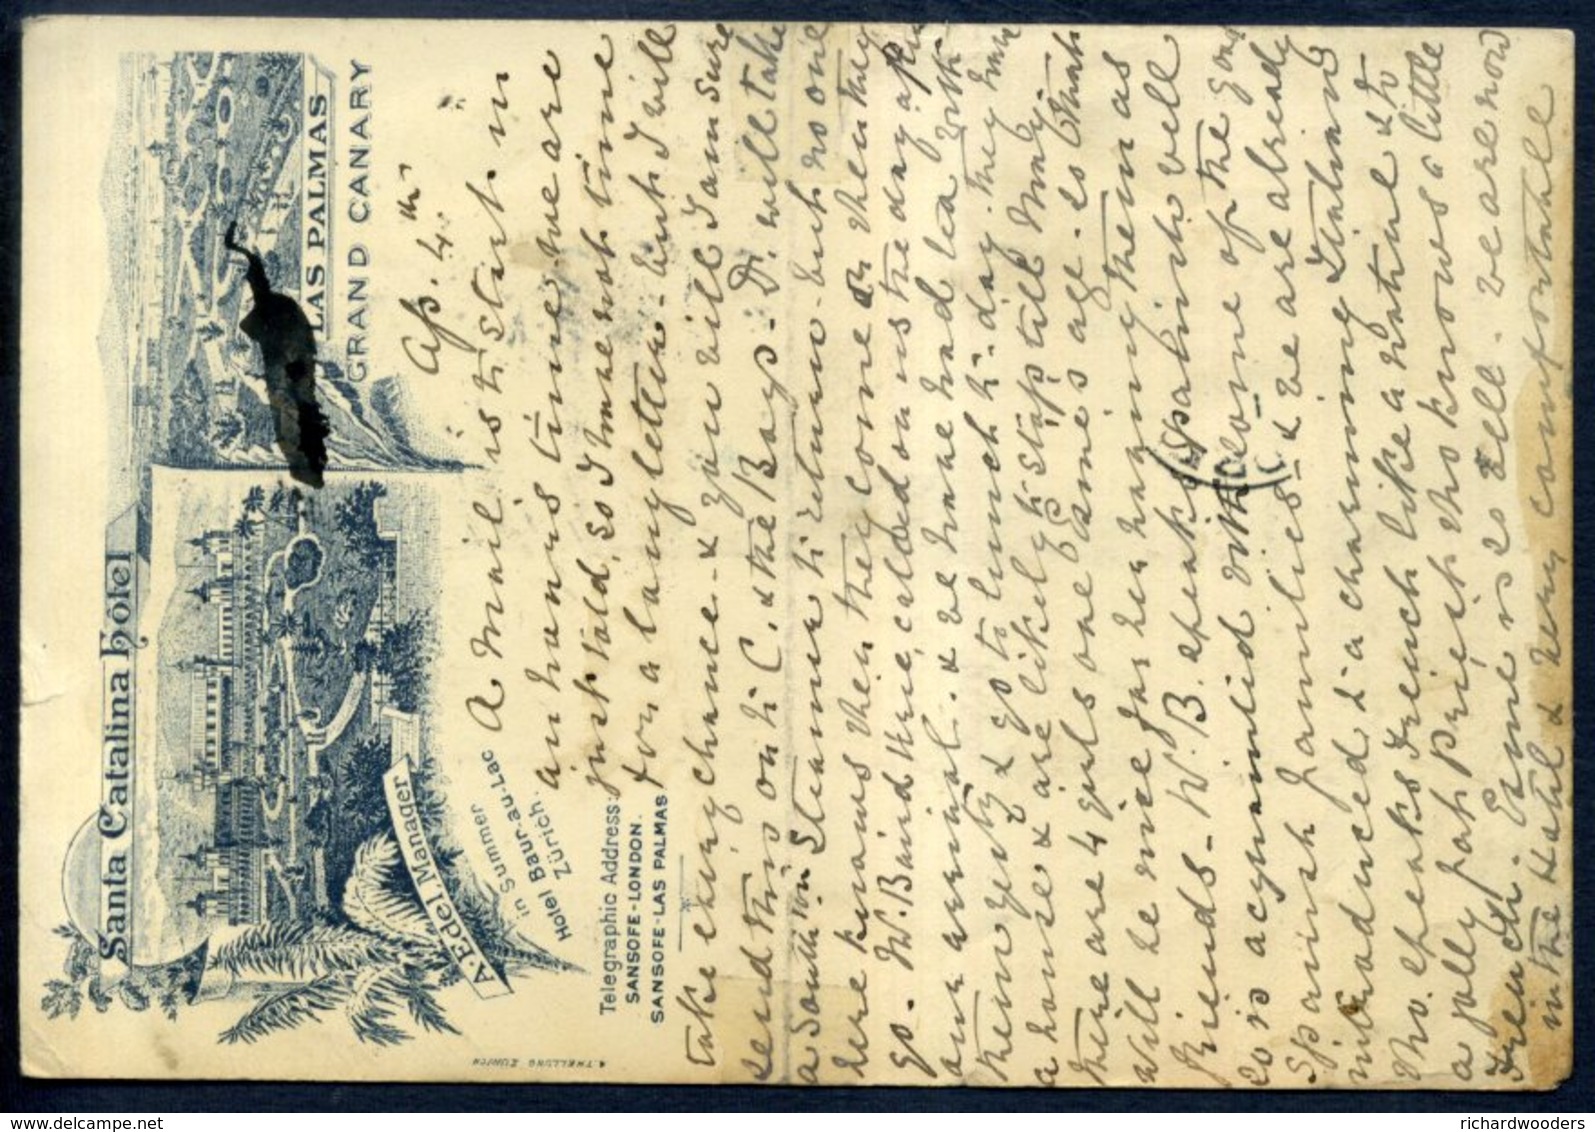 Santa Catalina Hôtel
LAS PALMAS
GRAND CANARY
A. Edel, Manager
in Summer
Hotel Baur-au-Lac
Zürich.
Telegraphic Address:
SANSOFE-LONDON.
SANSOFE-LAS PALMAS
A. THELLUNG ZURICH
Ap. 4th
A Mail is to start in
an hours time we are
just told, so I have not time
for a long letter - but I will
take every chance - & you will I am sure
send this on to C. & the Boys. Dr. will take
a Southn. Steamer to return - but no one
here knows when they come or when they
go. W. Baird here, called on us the day after
our arrival. & we have had tea with
them yesty & go to lunch to-day. they have
a house & are likely to stop till May.
there are 4 girls one Esmé's age - so that
will be nice for her having them as
friends - W. B. speaks Spanish well
& is acquainted with some of the good
Spanish families - & we are already
introduced to a charming Italian
who speaks French like a native & to
a jolly fat priest who knows a little
French. Esmé is so well. we are now
in the Hotel & very comfortable
richardwooders